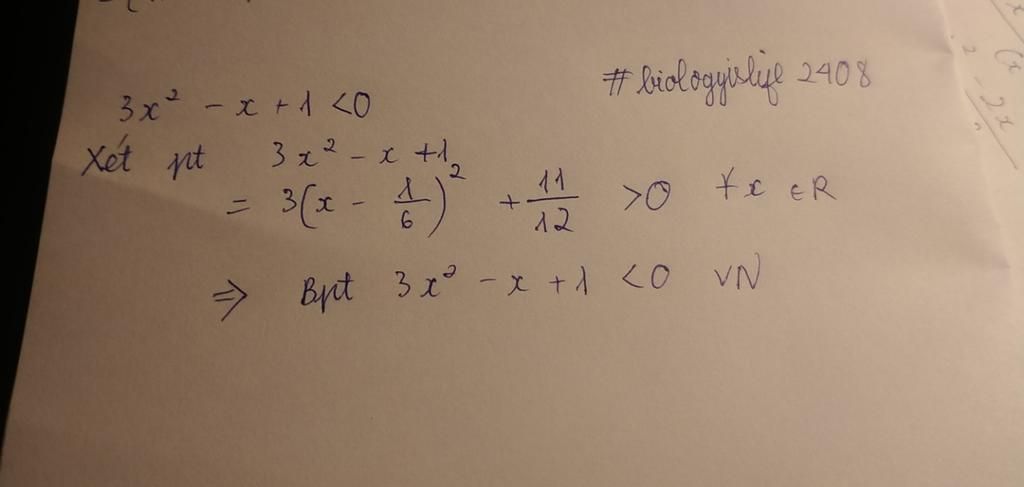 #biologyislife 2408
3x² - x + 1 < 0
Xét pt 3x² - x + 1
= 3(x - 1/6)² + 11/12 > 0 ∀x ∈ R
⇒ Bpt 3x² - x + 1 < 0 VN